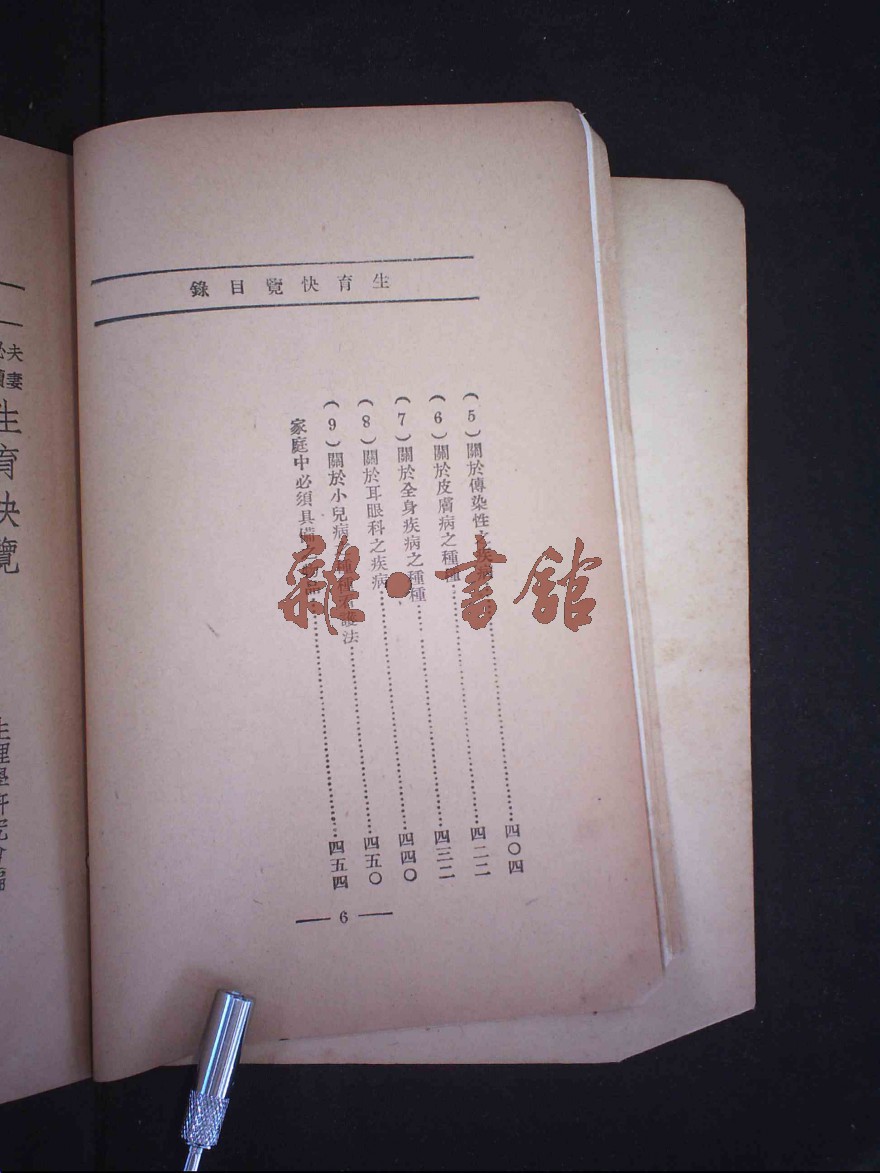 生育快覽目錄
(5)關於傳染性之疾病……四〇四
(6)關於皮膚病之種種……四二二
(7)關於全身疾病之種種……四三二
(8)關於耳眼科之疾病……四四〇
(9)關於小兒病種種護法……四五〇
家庭中必須具備……四五四
— 6 —
雜·書館
夫妻
生育快覽
生理學研究會編